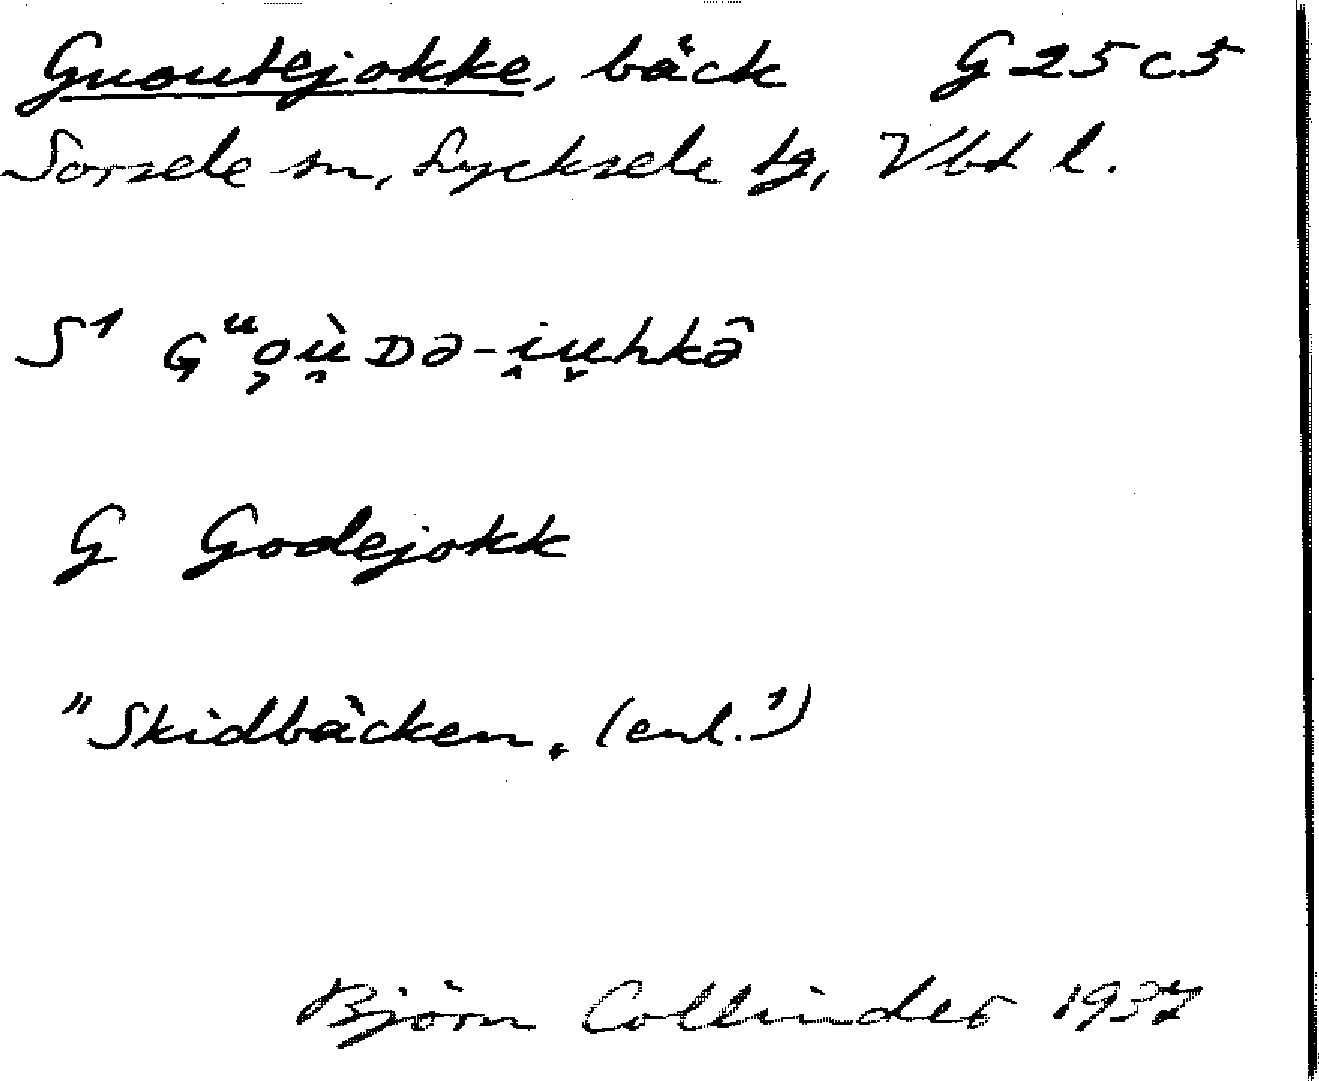 Guoutejokke, bäck G 25 c 5
Sorsele sn, Lycksele tg, Vbt l.
S¹
G Godejokk
"Skidbäcken„ (enl.¹)
Björn Collinder 1937